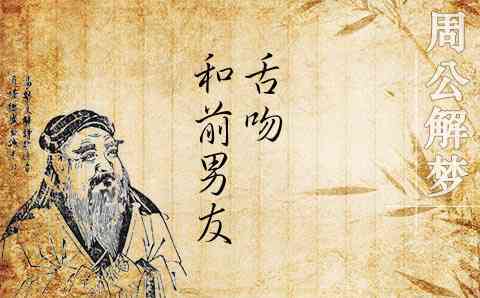 周公解梦
舌吻
和前男友